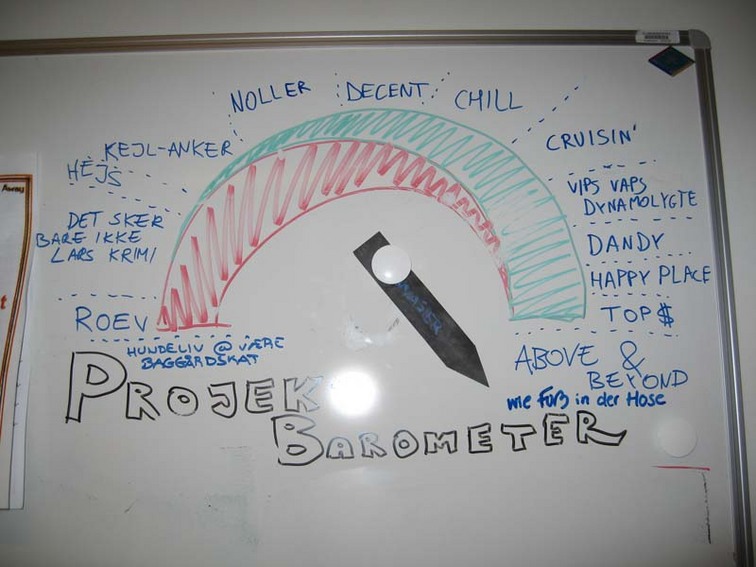 NOLLER
DECENT
CHILL
KEJL-ANKER
CRUISIN'
HEJS
VIPS VAPS
DYNAMOLYGTE
DET SKER
BARE IKKE
LARS KRIMI
DANDY
HAPPY PLACE
ROEV
TOP$
HUNDELIV @ VÆRE
BAGGÅRDSKAT
ABOVE &
BEYOND
wie Fuß in der Hose
PROJEK
BAROMETER